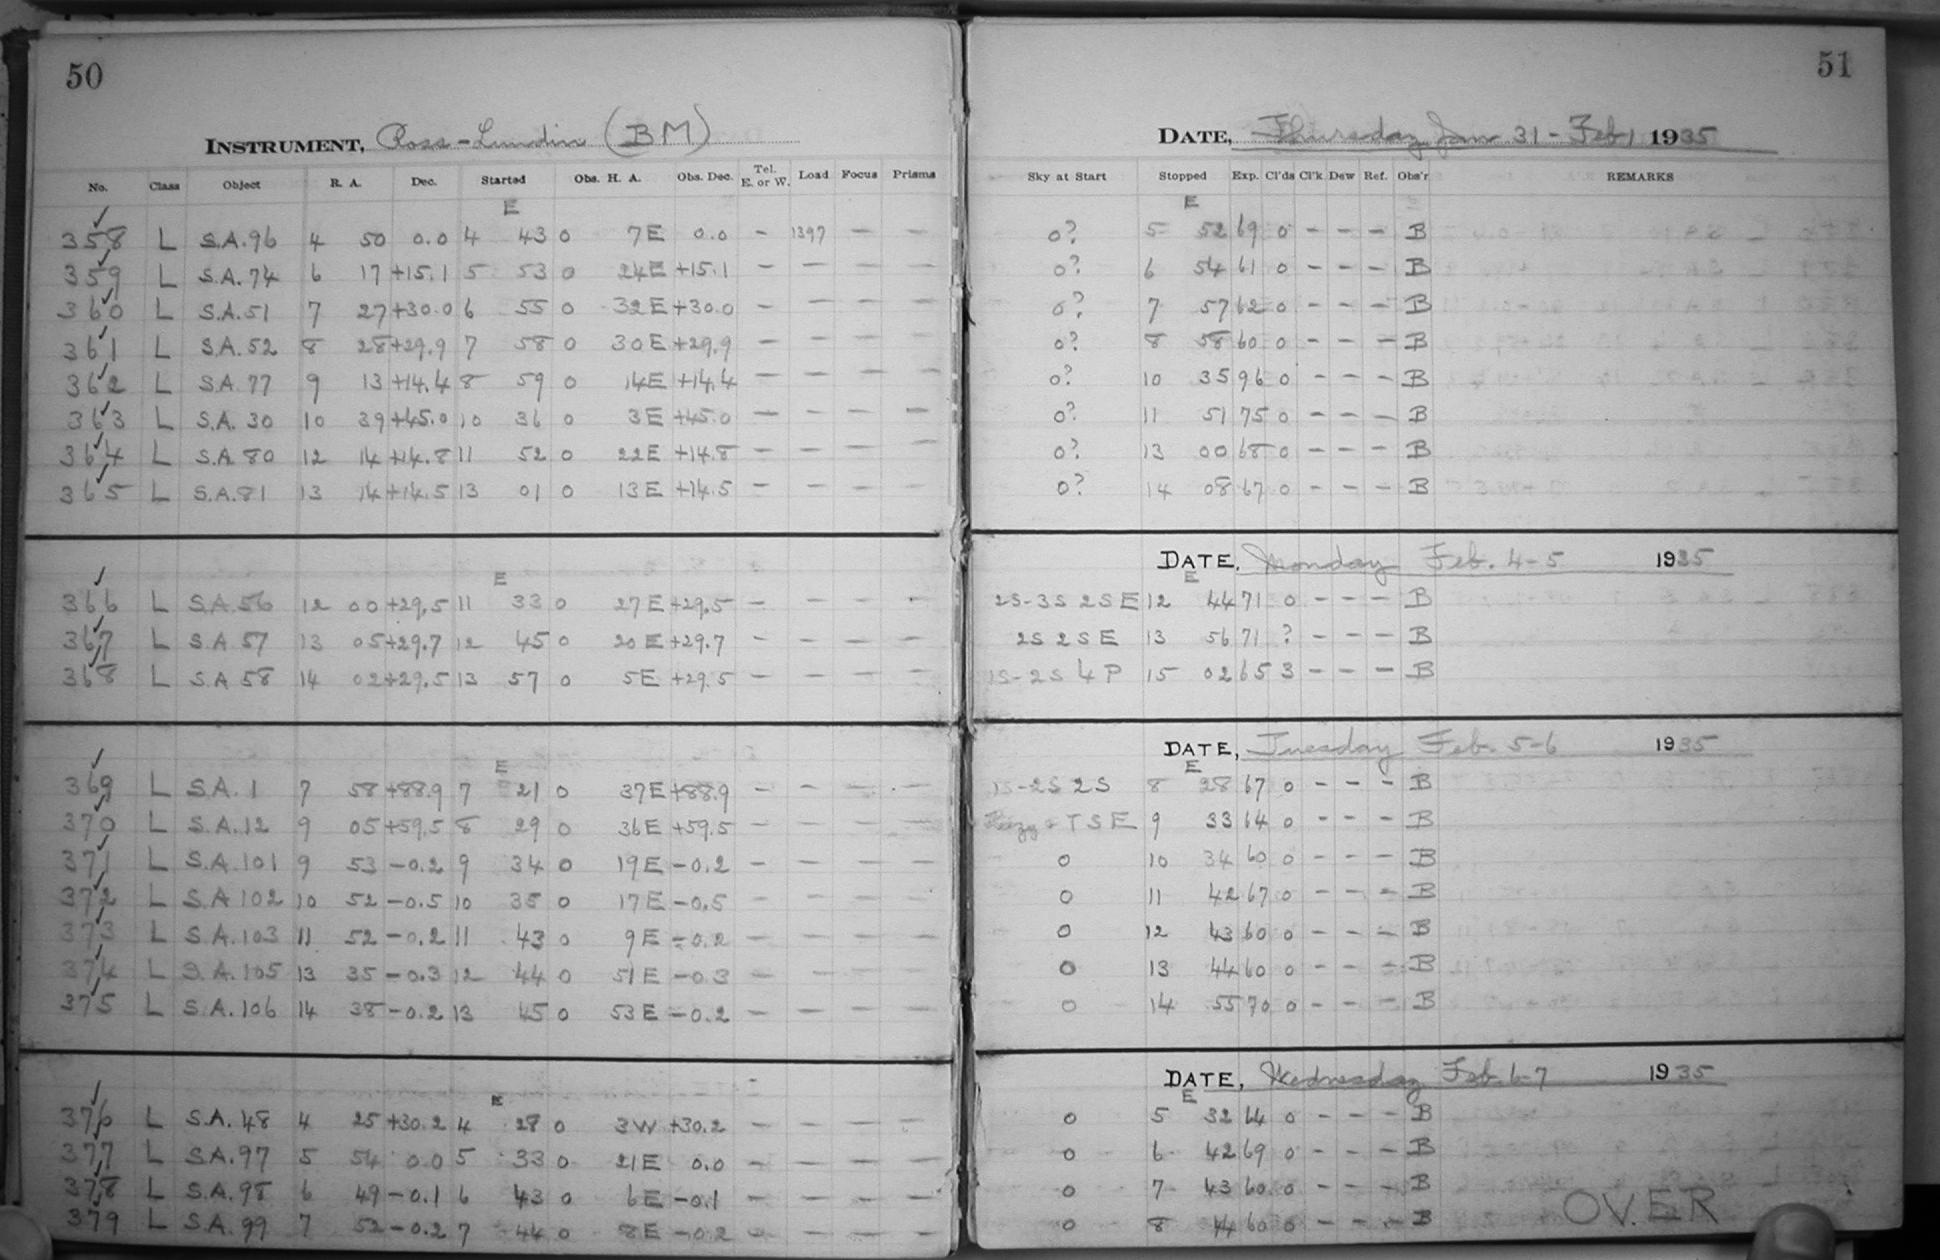 50
INSTRUMENT, Ross-Lundin (BM)
No. Class Object R. A. Dec. Started Obs. H. A. Obs. Dec. Tel. E. or W. Load Focus Prisms
E
358 L S.A.96 4 50 0.0 4 43 0 7E 0.0 - 1397 - -
359 L S.A.74 6 17 +15.1 5 53 0 24E +15.1 - - - -
360 L S.A.51 7 27 +30.0 6 55 0 32E +30.0 - - - -
361 L S.A.52 8 28 +29.9 7 58 0 30E +29.9 - - - -
362 L S.A.77 9 13 +14.4 8 59 0 14E +14.4 - - - -
363 L S.A. 30 10 39 +45.0 10 36 0 3E +45.0 - - - -
364 L S.A 80 12 14 +14.8 11 52 0 22E +14.8 - - - -
365 L S.A.81 13 14 +14.5 13 01 0 13E +14.5 - - - -
E
366 L S.A.56 12 00 +29.5 11 33 0 27E +29.5 - - - -
367 L S.A 57 13 05 +29.7 12 45 0 20E +29.7 - - - -
368 L S.A 58 14 02 +29.5 13 57 0 5E +29.5 - - - -
E
369 L S.A. 1 7 58 +88.9 7 21 0 37E +88.9 - - - -
370 L S.A.12 9 05 +59.5 8 29 0 36E +59.5 - - - -
371 L S.A.101 9 53 -0.2 9 34 0 19E -0.2 - - - -
372 L S.A 102 10 52 -0.5 10 35 0 17E -0.5 - - - -
373 L S.A.103 11 52 -0.2 11 43 0 9E -0.2 - - - -
374 L S.A.105 13 35 -0.3 12 44 0 51E -0.3 - - - -
375 L S.A.106 14 38 -0.2 13 45 0 53E -0.2 - - - -
E
376 L S.A. 48 4 25 +30.2 4 28 0 3W +30.2 - - - -
377 L S.A.97 5 54 0.0 5 33 0 21E 0.0 - - - -
378 L S.A.98 6 49 -0.1 6 43 0 6E -0.1 - - - -
379 L S.A.99 7 52 -0.2 7 44 0 8E -0.2 - - - -
51
DATE, Thursday Jan 31 - Feb 1 1935
Sky at Start Stopped Exp. Cl'ds Cl'k Dew Ref. Obs'r REMARKS
E
0? 5 52 69 0 - - - B
0? 6 54 61 0 - - - B
0? 7 57 62 0 - - - B
0? 8 58 60 0 - - - B
0? 10 35 96 0 - - - B
0? 11 51 75 0 - - - B
0? 13 00 68 0 - - - B
0? 14 08 67 0 - - - B
DATE, Monday Feb. 4-5 1935
E
2S-3S 2SE 12 44 71 0 - - - B
2S 2SE 13 56 71 ? - - - B
1S-2S 4P 15 02 65 3 - - - B
DATE, Tuesday Feb. 5-6 1935
E
1S-2S 2S 8 28 67 0 - - - B
TSE 9 33 64 0 - - - B
0 10 34 60 0 - - - B
0 11 42 67 0 - - - B
0 12 43 60 0 - - - B
0 13 44 60 0 - - - B
0 14 55 70 0 - - - B
DATE, Wednesday Feb. 6-7 1935
E
0 5 32 64 0 - - - B
0 6 42 69 0 - - - B
0 7 43 60 0 - - - B
0 8 44 60 0 - - - B
OVER